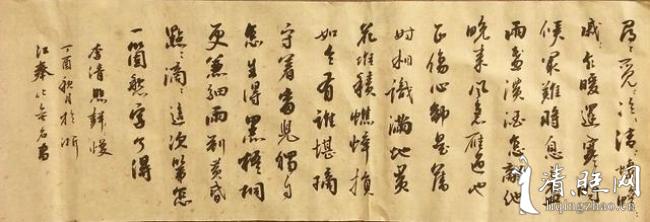 尋々覓々冷々清々凄々慘
戚々乍暖還寒時
候最難將息三盃
兩盞淡酒怎敵他
晚來風急雁過也
正傷心卻是舊
時相識滿地黃
花堆積憔悴損
如今有誰堪摘
守著窗兒獨自
怎生得黑梧桐
更兼細雨到黃昏
點々滴々這次第怎
一箇愁字了得
李清照聲慢
丁酉秋月於浙
江秦
清照网
liqingzhao.cn